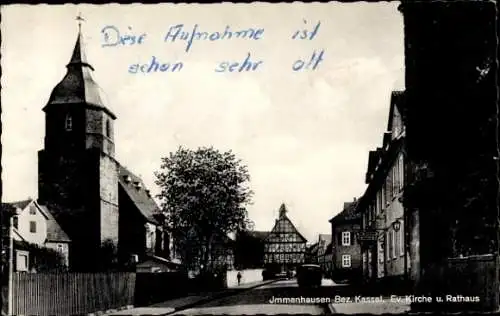 Diese Aufnahme ist
schon sehr alt
Jmmenhausen Bez. Kassel, Ev. Kirche u. Rathaus